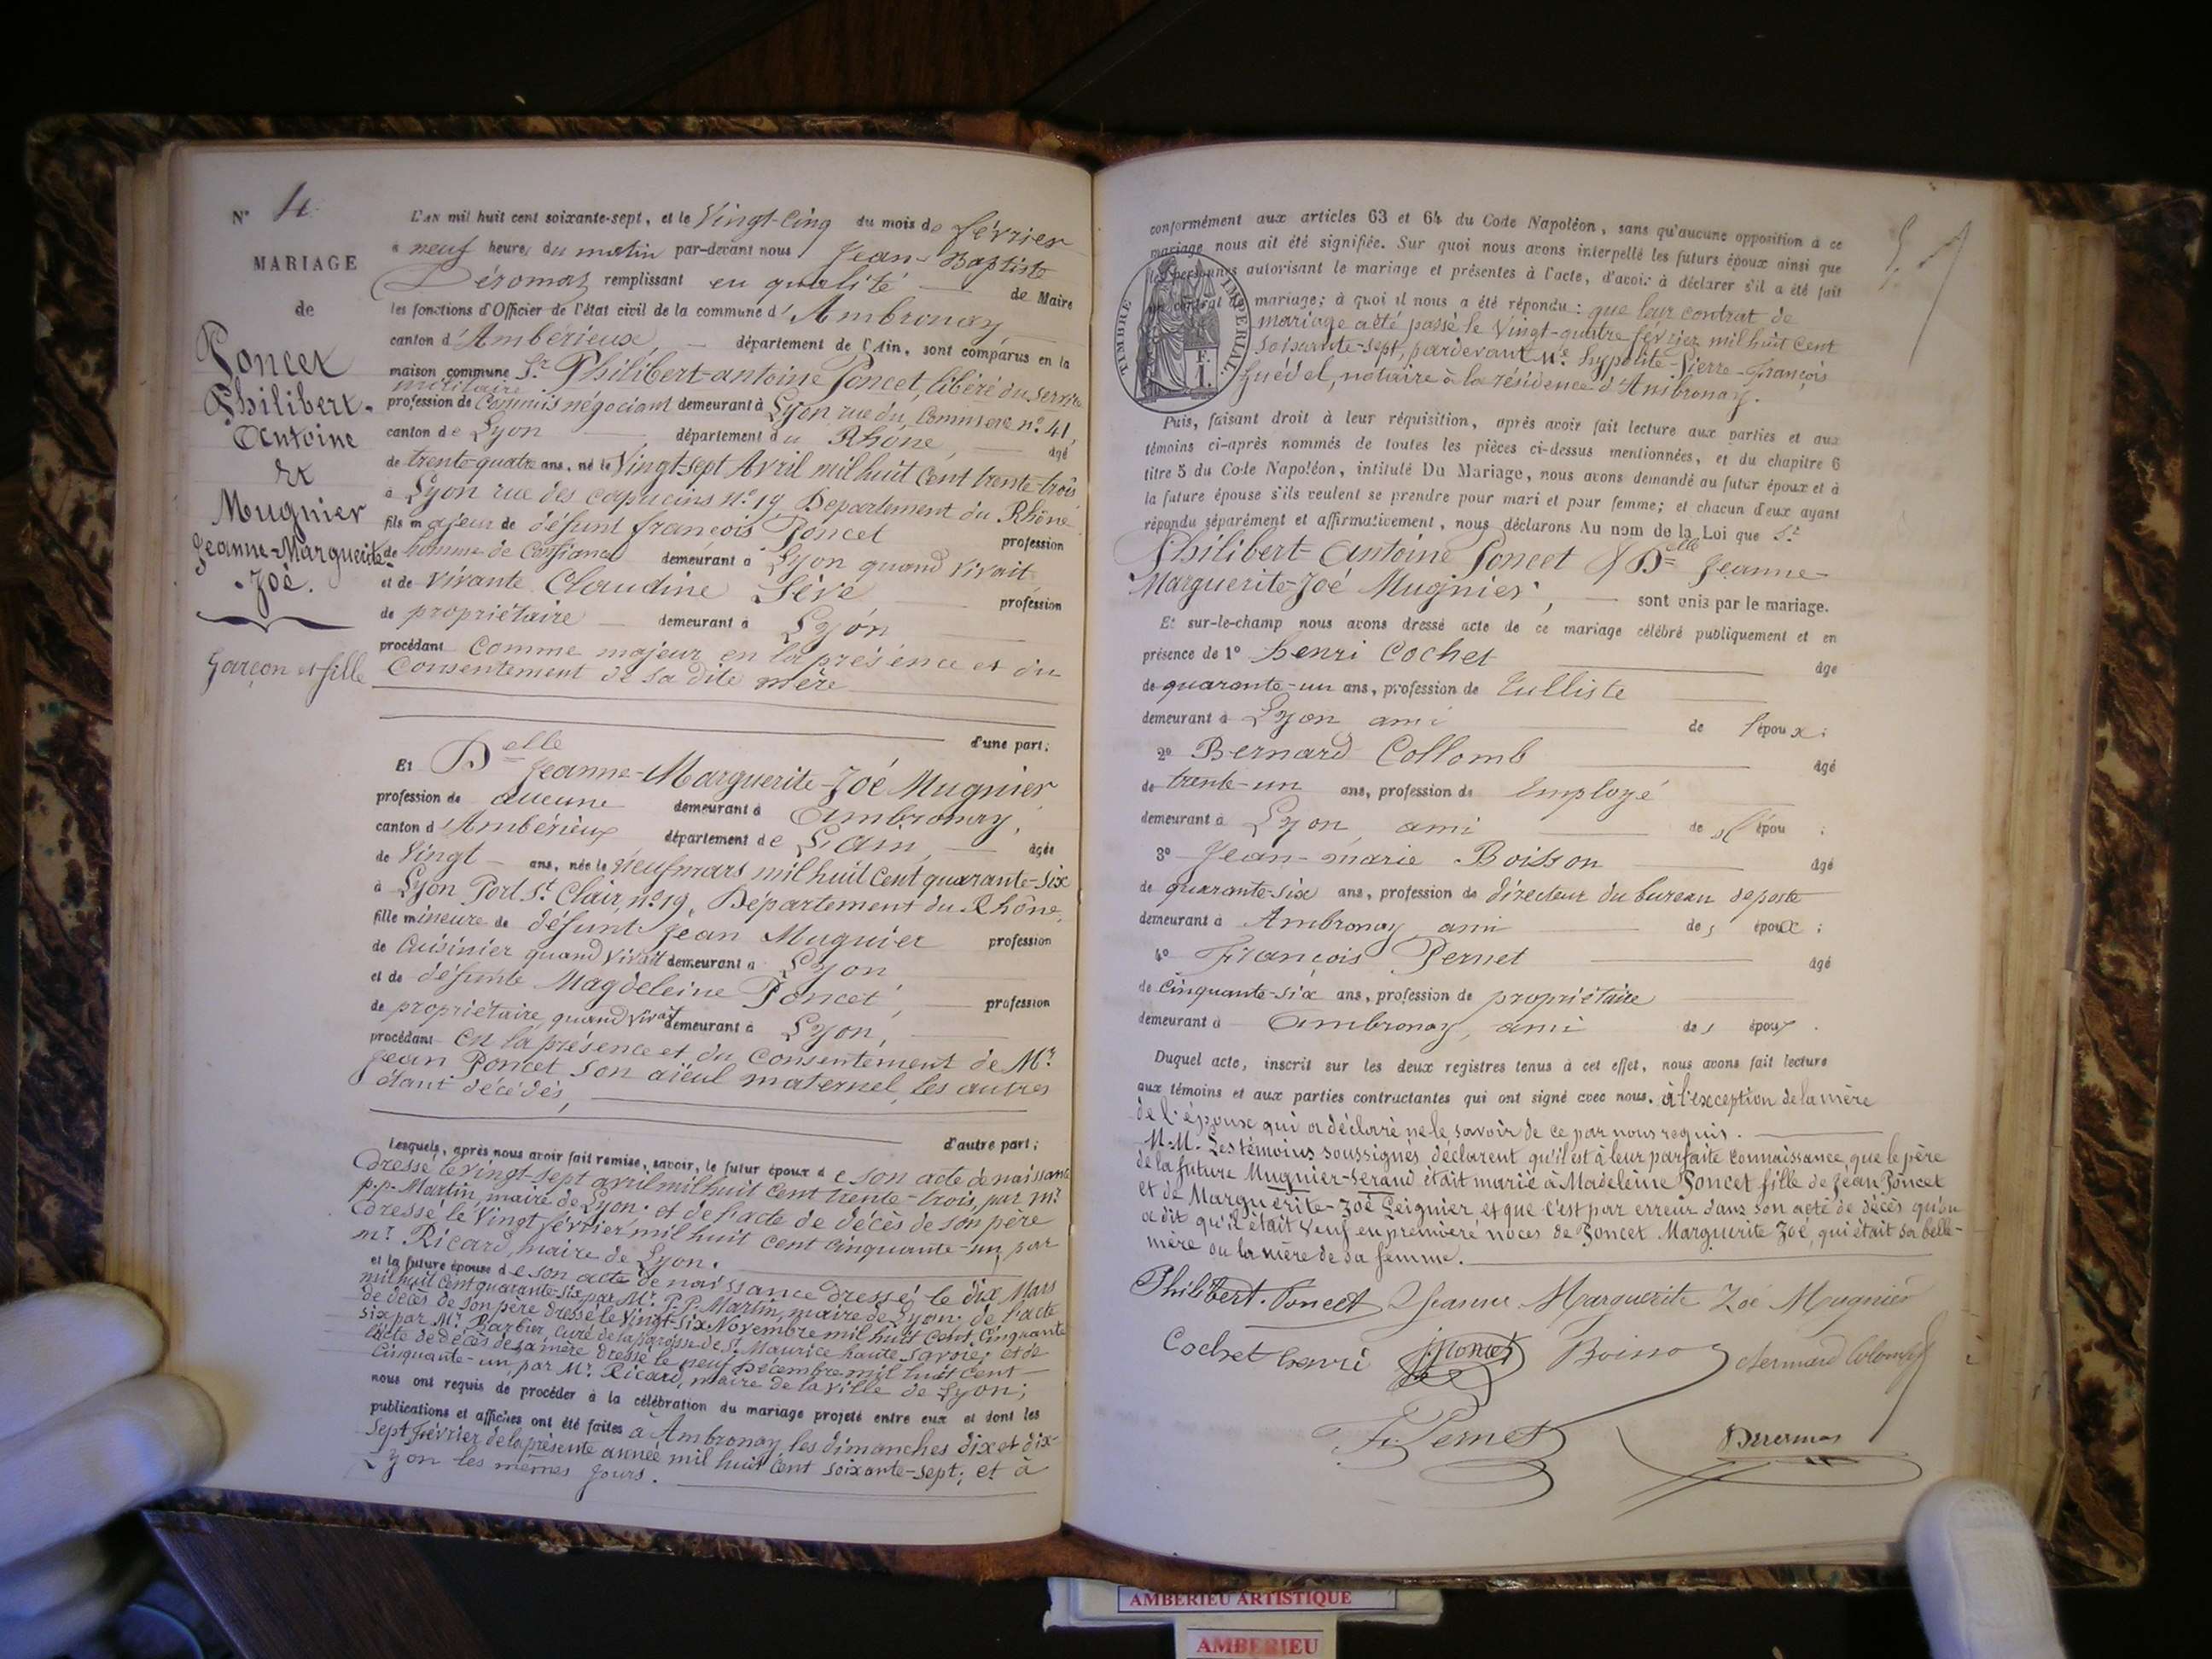 N° 4
MARIAGE
de
Poncet
Philibert-
Antoine
et
Mugnier
Jeanne-Marguerite-
Zoé.
Garçon et fille
L'AN mil huit cent soixante-sept, et le Vingt-Cinq du mois de février
a neuf heures du matin par-devant nous Jean-Baptiste
Déromas remplissant en qualité de Maire
les fonctions d'Officier de l'état civil de la commune d'Ambronay
canton d'Ambérieux, département de l'Ain, sont comparus en la
maison commune Sr. Philibert-antoine Poncet, libéré du service
militaire
profession de Commis négociant demeurant à Lyon rue du Commerce n° 41,
canton de Lyon, département du Rhône, âgé
de trente-quatre ans, né le Vingt-sept Avril mil huit Cent trente-trois
à Lyon rue des capucins N° 19 Département du Rhône
fils majeur de défunt françois Poncet profession
de homme de Confiance demeurant à Lyon quand vivait
et de vivante Claudine Sève profession
de propriétaire demeurant à Lyon
procédant Comme majeur en la présence et du
Consentement de sa dite mère
d'une part;
Et Delle Jeanne-Marguerite-Zoé Mugnier
profession de aucune demeurant à Ambronay,
canton d'Ambérieux département de L'ain, âgée
de Vingt ans, née le Neuf mars mil huit Cent quarante-Six
à Lyon Port St. Clair, n° 19, Département du Rhône,
fille mineure de défunt Jean Mugnier profession
de Cuisinier quand vivait demeurant à Lyon
et de défunte Magdeleine Poncet, profession
de propriétaire quand vivait demeurant à Lyon,
procédant en la présence et du Consentement de Mr.
Jean Poncet son aïeul maternel, les autres
étant décédés,
d'autre part;
Lesquels, après nous avoir fait remise, savoir, le futur époux de son acte de naissance
dressé le vingt-sept avril mil huit Cent trente-trois, par mr.
p.p. Martin, maire de Lyon. et de l'acte de décès de son père
dressé le Vingt février mil huit Cent Cinquante-un, par
mr. Ricard, maire de Lyon.
et la future épouse de son acte de naissance dressé le dix Mars
mil huit Cent quarante-Six par Mr. P.P. Martin, maire de Lyon; de l'acte
de décès de son père dressé le Vingt-Six Novembre mil huit Cent Cinquante
six par Mr. Barbier, Curé de la paroisse de St. Maurice haute Savoie; et de
l'acte de décès de sa mère dressé le neuf Décembre mil huit Cent
Cinquante-un, par Mr. Ricard, maire de la ville de Lyon;
nous ont requis de procéder à la célébration du mariage projeté entre eux et dont les
publications et affiches ont été faites à Ambronay, les dimanches dix et dix-
sept février de la présente année mil huit Cent soixante-sept; et à
Lyon les mêmes jours.
conformément aux articles 63 et 64 du Code Napoléon, sans qu'aucune opposition à ce
mariage nous ait été signifiée. Sur quoi nous avons interpellé les futurs époux ainsi que
les personnes autorisant le mariage et présentes à l'acte, d'avoir à déclarer s'il a été fait
un contrat de mariage; à quoi il nous a été répondu: que leur contrat de
mariage a été passé le Vingt-quatre février mil huit Cent
soixante-sept, pardevant Me. hyppolite-Pierre-François
Guédel, notaire à la résidence d'Ambronay.
TIMBRE IMPERIAL.
F.
1.
Puis, faisant droit à leur réquisition, après avoir fait lecture aux parties et aux
témoins ci-après nommés de toutes les pièces ci-dessus mentionnées, et du chapitre 6
titre 5 du Code Napoléon, intitulé Du Mariage, nous avons demandé au futur époux et à
la future épouse s'ils veulent se prendre pour mari et pour femme; et chacun d'eux ayant
répondu séparément et affirmativement, nous déclarons Au nom de la Loi que Sr.
Philibert-Antoine Poncet & Delle Jeanne-
Marguerite-Zoé Mugnier, sont unis par le mariage.
Et sur-le-champ nous avons dressé acte de ce mariage célébré publiquement et en
présence de 1° henri Cochet âgé
de quarante-un ans, profession de tulliste
demeurant à Lyon ami de l'époux;
2° Bernard Collomb âgé
de trente-un ans, profession de Employé
demeurant à Lyon, ami de l'épou ;
3° Jean-marie Boisson âgé
de quarante-six ans, profession de directeur du bureau de poste
demeurant à Ambronay, ami des époux;
4° François Pernet âgé
de Cinquante-six ans, profession de propriétaire
demeurant à Ambronay, ami des époux.
Duquel acte, inscrit sur les deux registres tenus à cet effet, nous avons fait lecture
aux témoins et aux parties contractantes qui ont signé avec nous. à l'exception de la mère
de l'époux qui a déclaré ne le savoir de ce par nous requis.
M.M. Les témoins soussignés déclarent qu'il est à leur parfaite Connaissance, que le père
de la future Mugnier-Serand était marié à Madeleine Poncet fille de Jean Poncet
et de Marguerite-Zoé Peignier et que c'est par erreur dans son acte de décès qu'on
a dit qu'il était Veuf en première noces de Poncet Marguerite Zoé, qui était sa belle-
mère ou la mère de sa femme.
Philibert. Poncet Jeanne Marguerite Zoé Mugnier
Cochet henri J Poncet Boisson Bernard Colomb
F. Pernet Deromas
AMBERIEU ARTISTIQUE
AMBERIEU